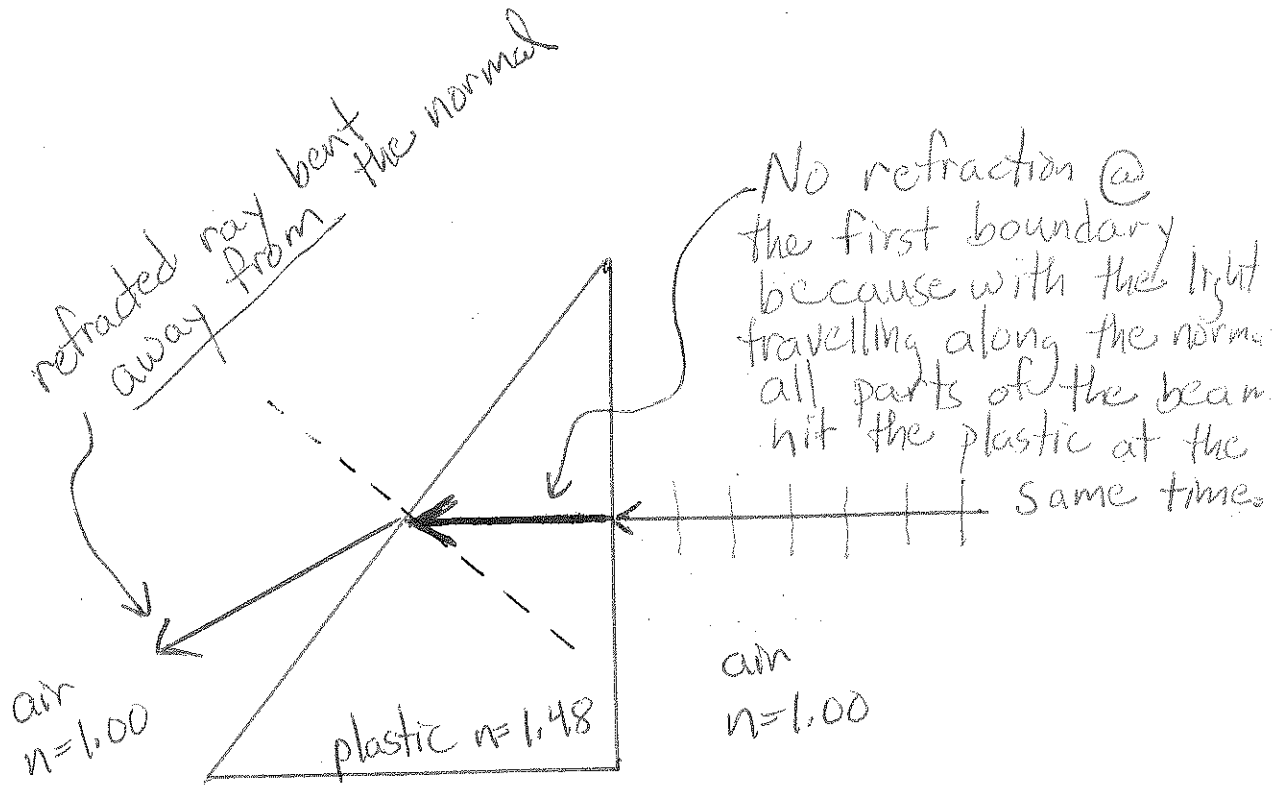 refracted ray bent
away from the normal
No refraction @
the first boundary
because with the light
travelling along the norma
all parts of the beam
hit the plastic at the
same time.
air
n=1.00
plastic n=1.48
air
n=1.00